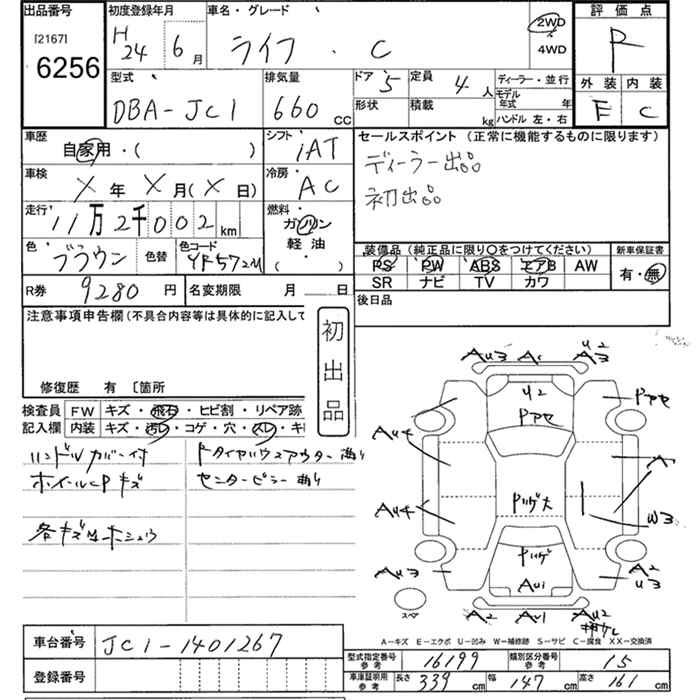 出品番号
[2167]
6256
初度登録年月
H 24 6月
車名・グレード
ライフ ・ C
2WD
4WD
評価点
R
外装 内装
E C
型式
DBA-JC1
排気量
660 CC
ドア 5
定員 4人
ディーラー・並行
形状
積載 kg
モデル年式 年
ハンドル 左・右
車歴
自家用・( )
シフト
iAT
セールスポイント (正常に機能するものに限ります)
ディーラー出品
初出品
車検
X年 X月(X日)
冷房
AC
走行
11万2千002km
燃料
ガソリン
軽油
( )
色
ブラウン
色替
色コード
YR572M
装備品(純正品に限り○をつけてください)
新車保証書
PS PW ABS エアB AW
SR ナビ TV カワ
有・無
R券 9280円
名変期限 月 日
後日品
注意事項申告欄(不具合内容等は具体的に記入して
初出品
修復歴 有 〔箇所
検査員
記入欄
FW キズ・飛石・ヒビ割・リペア跡
内装 キズ・汚レ・コゲ・穴・スレ・キ
ハンドルカバー付
ホイールCPキズ
各キズ凹ホシュウ
ドライバウスアウター曲り
センターピラー曲り
AU3 A U2
A3
U2
Pアセ
Pアセ
AU4
A
Pリゲ大
AU4
W3
Pリゲ
AU3
AU1
A2
U3
スペア
A2 AU1 AU2
A-キズ E-エクボ U-凹み W-補修跡 S-サビ C-腐食 XX-交換済
車台番号 JC1-1401267
登録番号
型式指定番号 参考 16199
類別区分番号 参考 15
車庫証明用 参考 長さ 339cm 幅 147cm 高さ 161cm